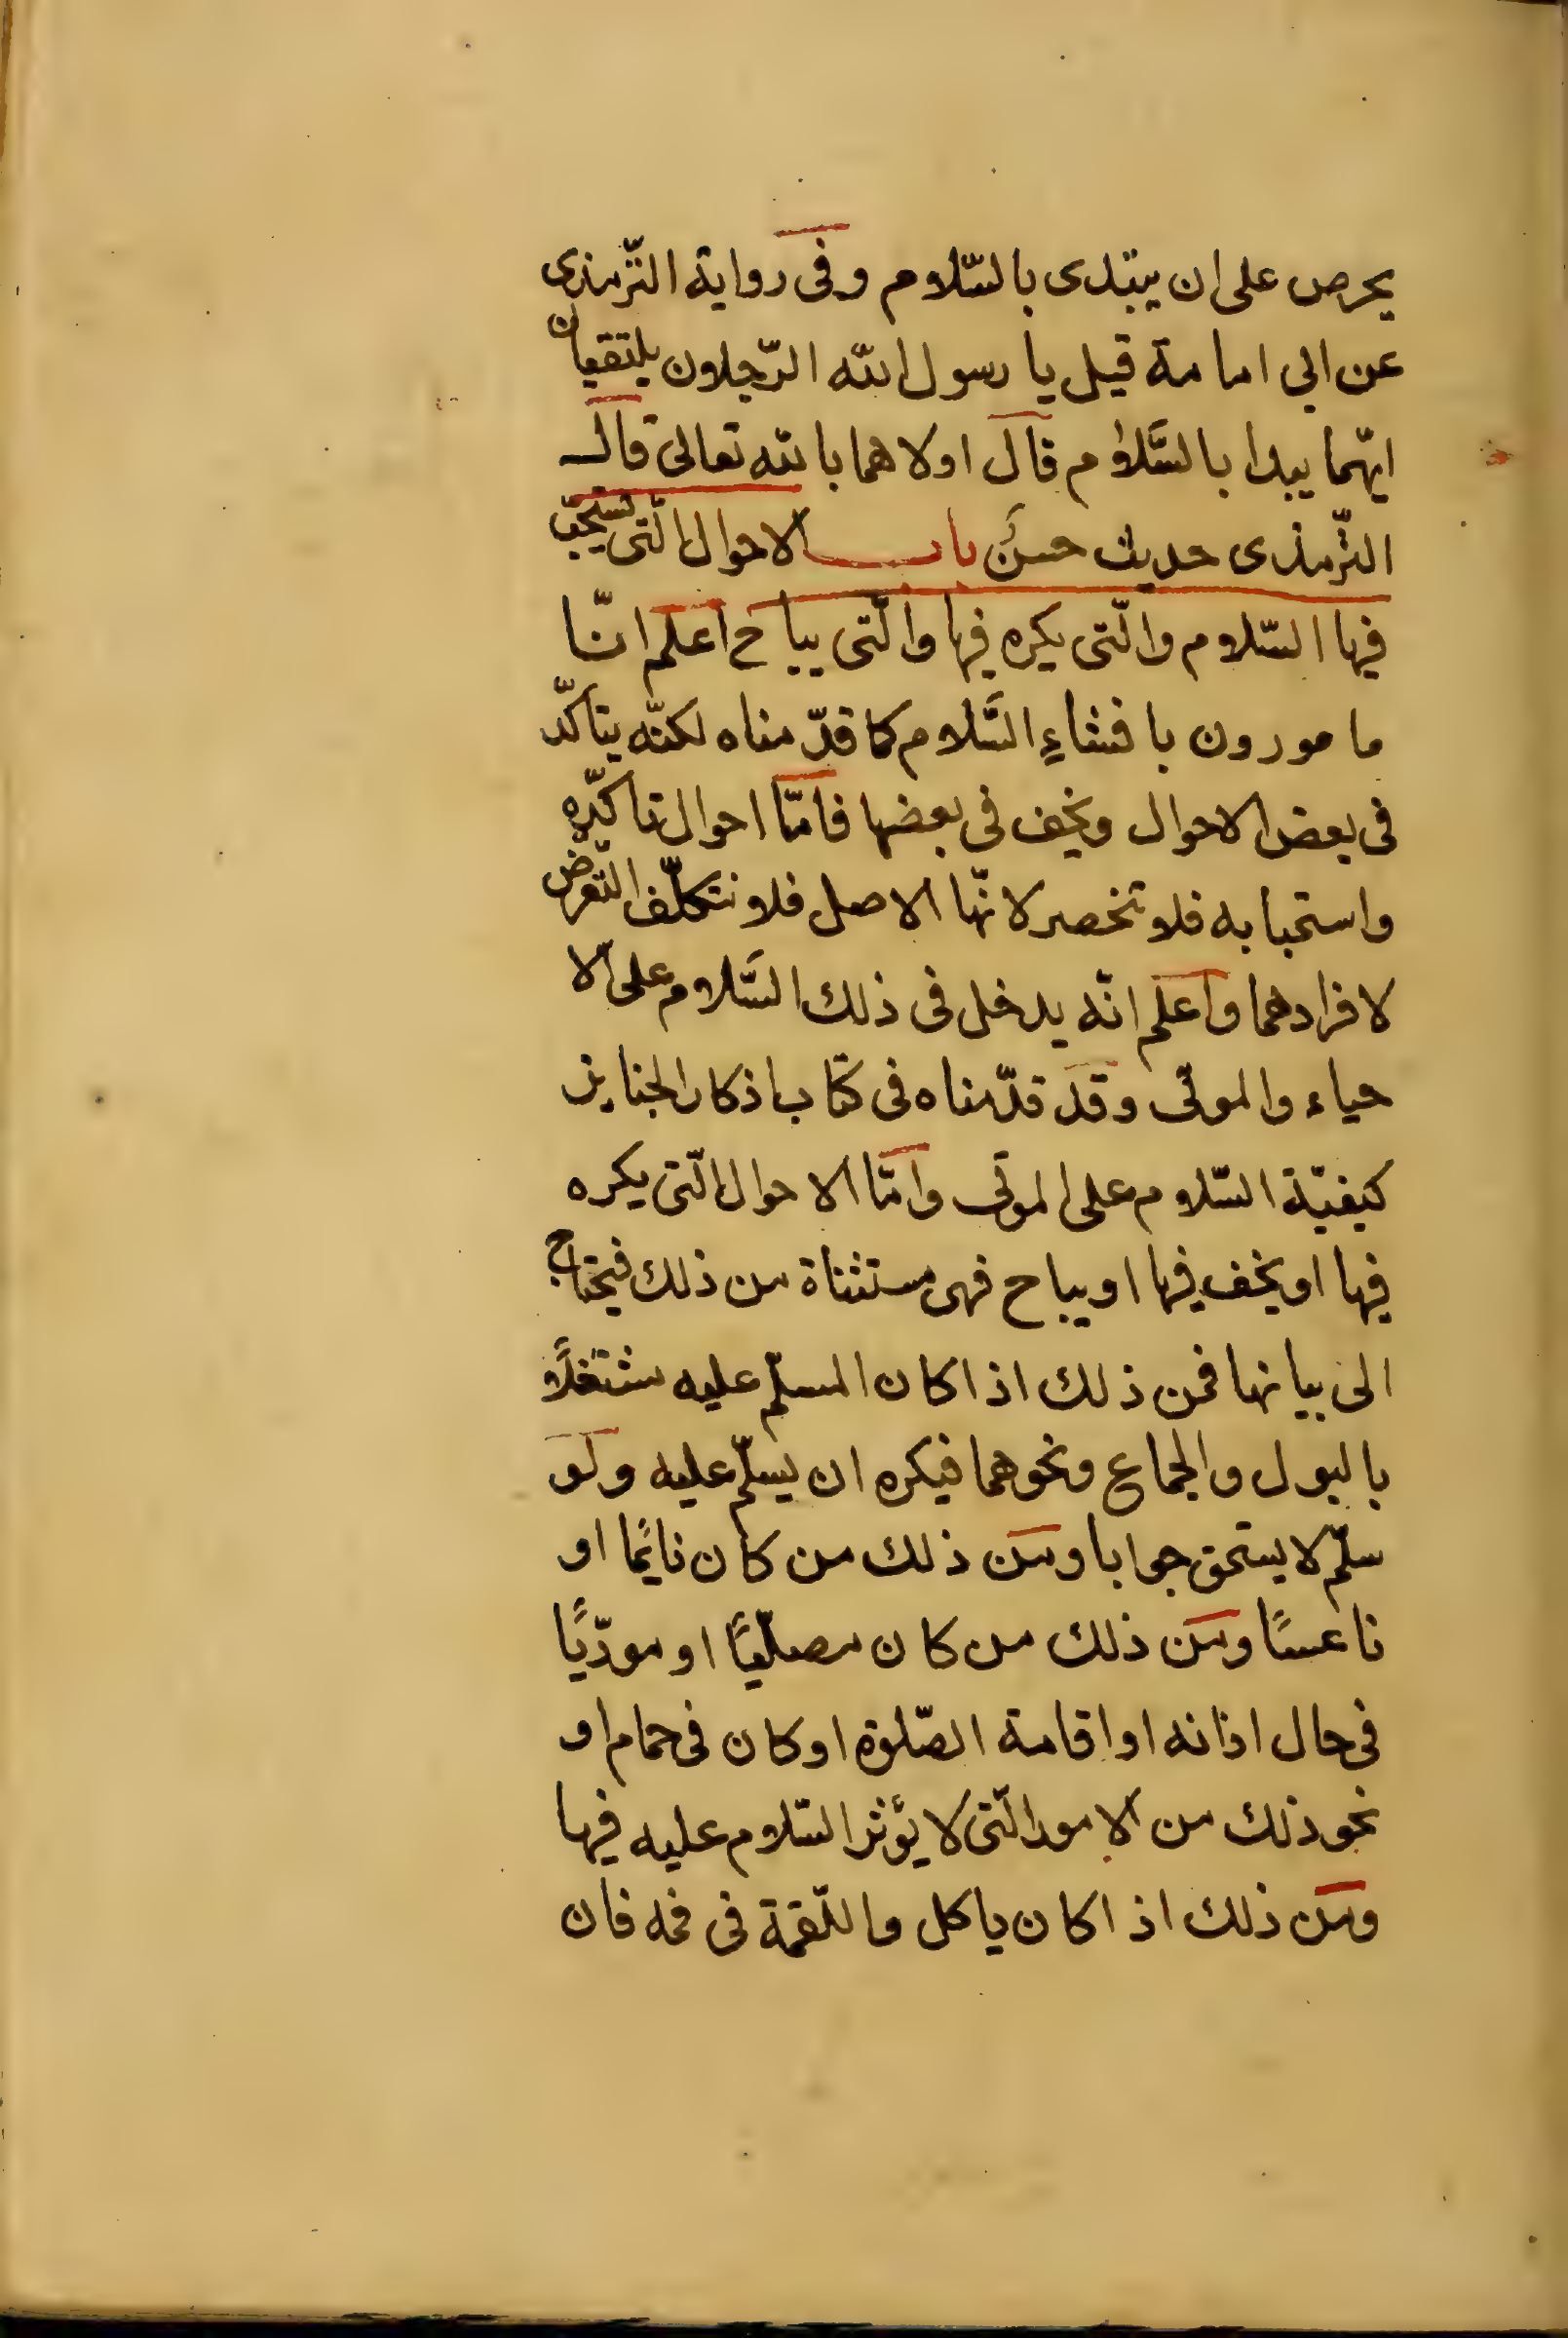 يحرص على ان يبتدى بالسّلام وفى رواية التّرمذى
عن ابى امامة قيل يا رسول الله الرّجلان يلتقيان
ايّهما يبدا بالسَّلام قال اولاهما بالله تعالى قال
التّرمذى حديث حسنٌ باب الاحوال الّتى تستحبّ
فيها السّلام والّتى يكره فيها والّتى يباح اعلم انّا
مامورون بافشاءِ السَّلام كما قدّمناه لكنّه يتاكّد
فى بعض الاحوال ويخف فى بعضها فامّا احوال تاكّده
واستحبابه فلا تنحصر لانّها الاصل فلا نتكلّف التّعرض
لافرادهما واعلم انّه يدخل فى ذلك السَّلام على الا
حياء والموتى وقد قدّمناه فى كتاب اذكار الجنايز
كيفيّة السّلام على الموتى وامّا الاحوال الّتى يكره
فيها او يخف فيها او يباح فهى مستثناة من ذلك فيحتاج
الى بيانها فمن ذلك اذا كان المسلّم عليه مشتغلًا
بالبول والجماع ونحوهما فيكره ان يسلّم عليه ولو
سلّم لا يستحق جوابا ومن ذلك من كان نايمًا او
ناعسًا ومن ذلك من كان مصلّيًا او موذّيًا
فى حال اذانه او اقامة الصّلوة او كان فى حمام او
نحو ذلك من الامور الّتى لا يؤثر السّلام عليه فيها
ومن ذلك اذا كان ياكل واللّقمة فى فمه فان